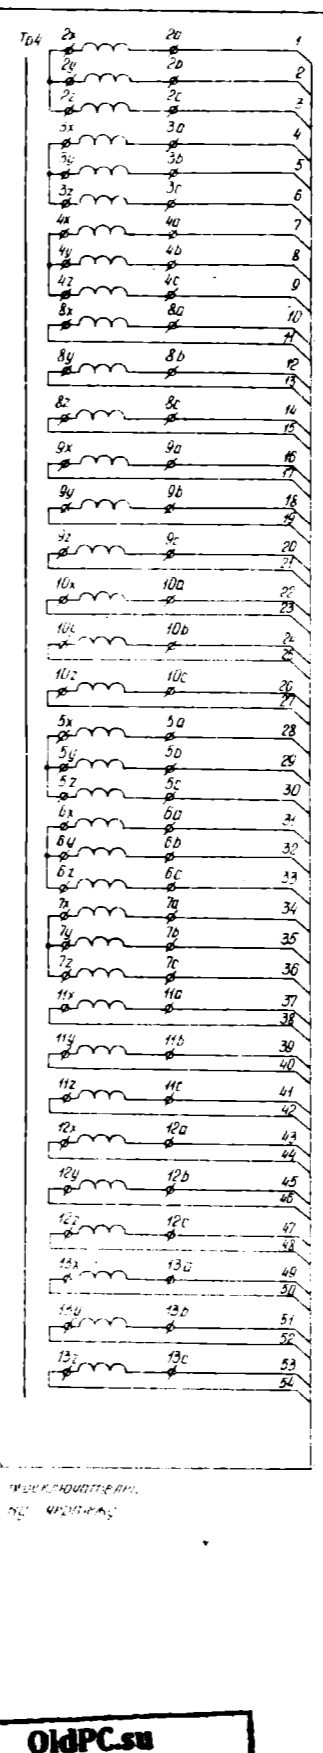 Тр4 2x 2a 1
2y 2b 2
2z 2c 3
3x 3a 4
3y 3b 5
3z 3c 6
4x 4a 7
4y 4b 8
4z 4c 9
8x 8a 10
11
8y 8b 12
13
8z 8c 14
15
9x 9a 16
17
9y 9b 18
19
9z 9c 20
21
10x 10a 22
23
10b 24
25
10z 10c 26
27
5x 5a 28
5y 5b 29
5z 5c 30
6x 6a 31
6y 6b 32
6z 6c 33
7x 7a 34
7y 7b 35
7z 7c 36
11x 11a 37
38
11y 11b 39
40
11z 11c 41
42
12x 12a 43
44
12y 12b 45
46
12z 12c 47
48
13x 13a 49
50
13y 13b 51
52
13z 13c 53
54
OldPC.su